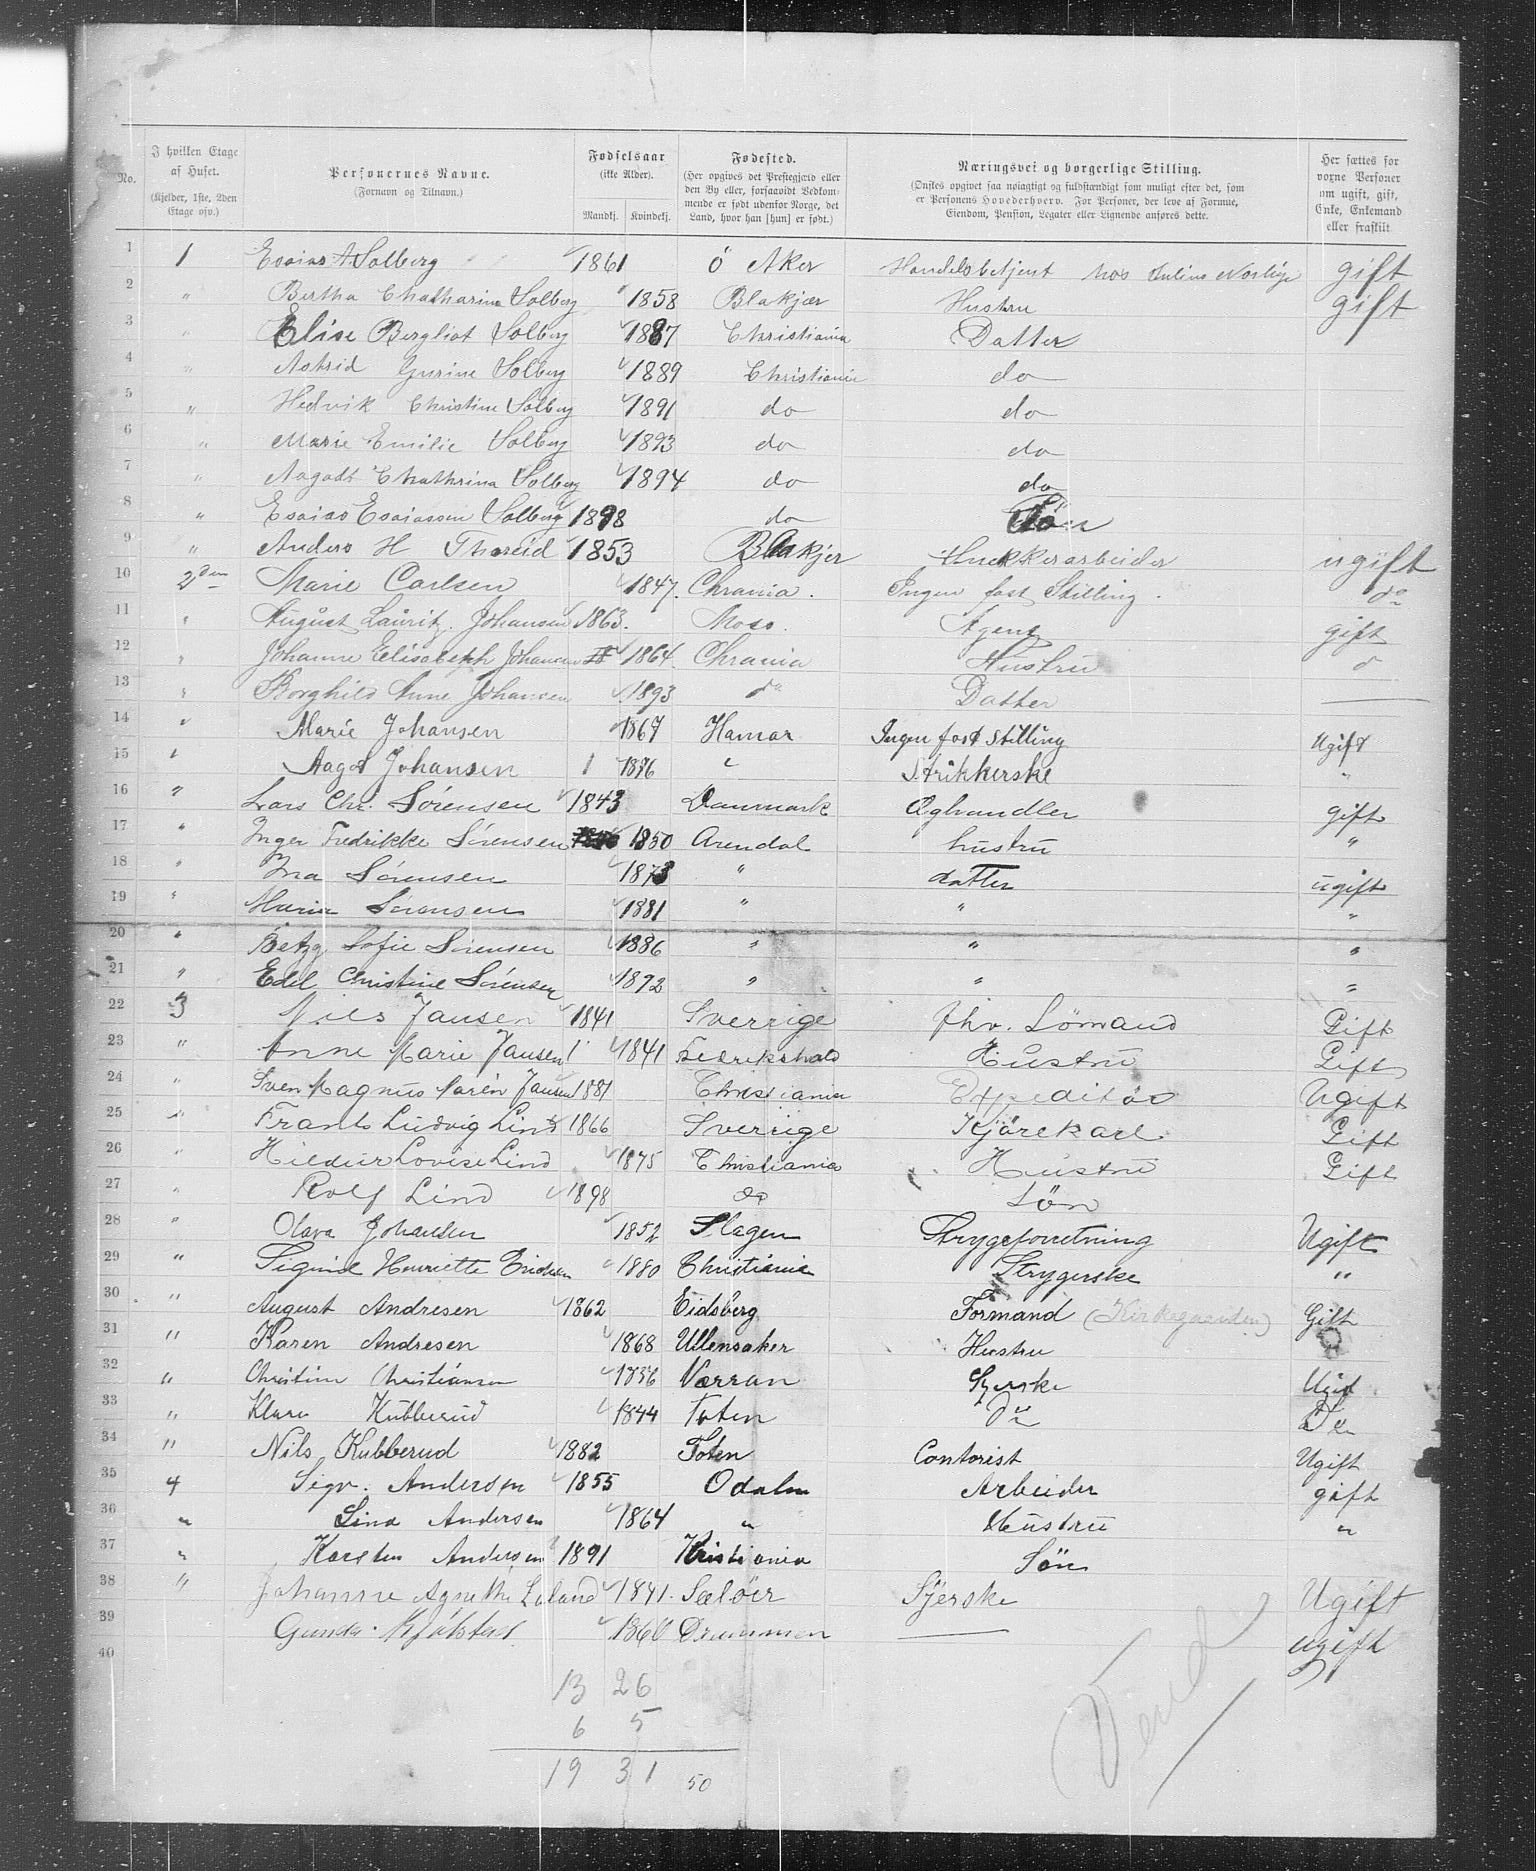 No. I hvilken Etage af Huset. (Kjelder, 1ste, 2den Etage osv.) Personernes Navne. (Fornavn og Tilnavn.) Fødselsaar (ikke Alder). Mandkj. Kvindekj. Fødested. (Her opgives det Prestegjæld eller den By eller, forsaavidt Vedkommende er født udenfor Norge, det Land, hvor han [hun] er født.) Næringsvei og borgerlige Stilling. (Ønskes opgivet saa nøiagtigt og fuldstændigt som muligt efter det, som er Personens Hovederhverv. For Personer, der leve af Formue, Eiendom, Pension, Legater eller Lignende anføres dette. Her sættes for vorne Personer om ugift, gift, Enke, Enkemand eller fraskilt
1 1 Esaias A Solberg 1861 ö Aker Handelsbetjent hos Julius gift
2 " Bertha Chatharina Solberg 1858 Blakjær Hustru gift
3 " Elise Bergliot Solberg 1887 Christiania Datter
4 " Astrid Gurine Solberg 1889 Christiania do
5 " Hedvik Christine Solberg 1891 do do
6 " Marie Emilie Solberg 1893 do do
7 " Aagodt Chathrina Solberg 1894 do do
8 " Esaias Esaiassen Solberg 1898 do Søn
9 " Anders H Thoreid 1853 Blakjer Snekkerarbeider ugift
10 2den Marie Carlsen 1847. Chrania. Ingen fast Stilling. do
11 " August Lauritz Johansen 1863. Moss. Agent gift
12 " Johanne Elisabeth Johansen 1864 Chrania Hustru d
13 " Borghild Anne Johansen 1893 do Datter
14 " Marie Johansen 1867 Hamar Ingen fast stilling Ugift
15 " Aagot Johansen 1 1876 " Strikkerske "
16 " Lars Chr. Sörensen 1843 Danmark Æghandler gift
17 " Inger Fredrikke Sörensen 1850 Arendal hustru "
18 " Ina Sörensen 1873 " datter ugift
19 " Maria Sörensen 1881 " " "
20 " Betzy Sofie Sörensen 1886 " " "
21 " Edel Christine Sörensen 1892 " " "
22 3 Nils Jansen 1841 Sverrige fhv. Sömand Gift
23 " Anne Marie Jansen 1 1841 Fredrikshald Hustru Gift
24 " Sven Magnus Marén Jansen 1881 Christiania Expeditør Ugift
25 " Frants Ludvig Lind 1866 Sverrige Kjørekarl Gift
26 " Hildur Lovise Lind 1875 Christiania Hustru Gift
27 " Rolf Lind 1898 do Søn
28 " Olava Johansen 1852 Slagen Strygeforretning Ugift
29 " Signe Henriette Ericksen 1880 Christiania Strygerske "
30 " August Andresen 1862 Eidsberg Formand (Kirkegaarden) Gift
31 " Karen Andresen 1868 Ullensaker Hustru
32 " Christine Christiansen 1836 Værran Syerske Ugif
33 " Klara Kubberud 1844 Toten Do Do
34 " Nils Kubberud 1882 Toten Contorist Ugift
35 4 Sigv. Andersen 1855 Odalen Arbeider gift
36 " Lina Andersen 1864 " Hustru "
37 " Karsten Andersen 1891 Kristiania Søn
38 " Johanne Agnethe Leland 1841. Sælöer Sÿerske Ugift
39 Gunda 1860 Drammen ugift
40
13 26
6 5
19 31 50
Vend